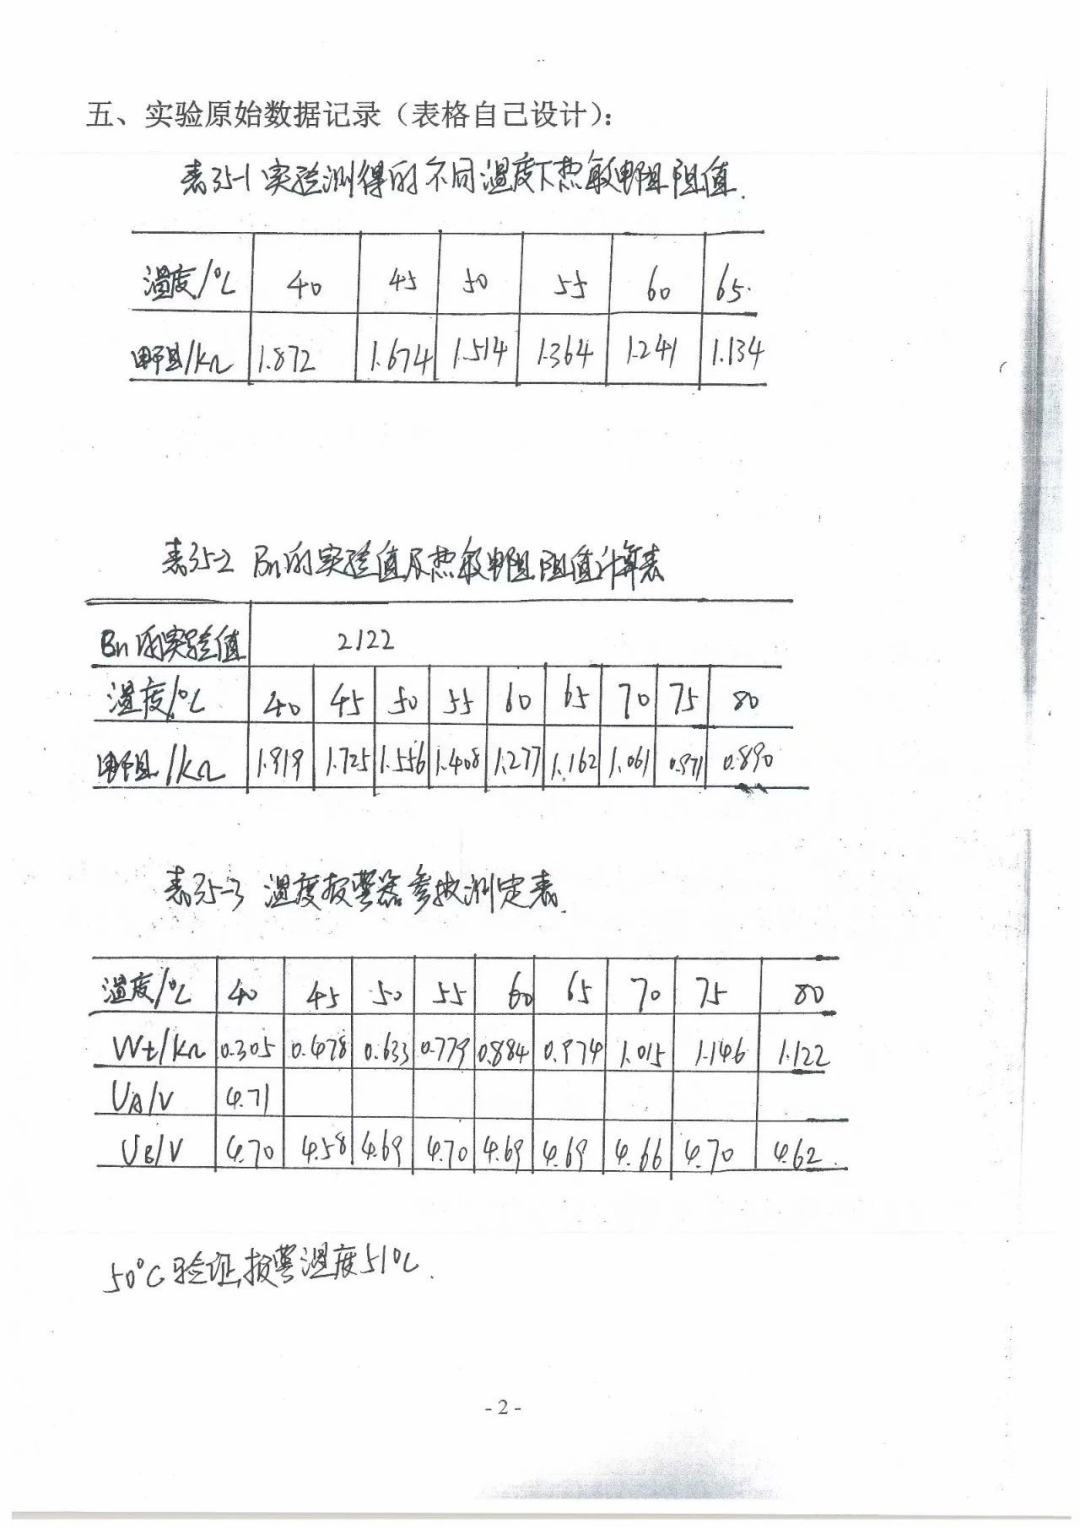 五、实验原始数据记录（表格自己设计）：
表35-1 实验测得的不同温度下热敏电阻阻值.
温度/℃ 40 45 50 55 60 65
电阻/kΩ 1.872 1.674 1.514 1.364 1.241 1.134
表35-2 Bn的实验值及热敏电阻阻值计算表
Bn的实验值 2122
温度/℃ 40 45 50 55 60 65 70 75 80
电阻/kΩ 1.919 1.725 1.556 1.408 1.277 1.162 1.061 0.971 0.890
表35-3 温度报警器参数测定表.
温度/℃ 40 45 50 55 60 65 70 75 80
Wt/kΩ 0.305 0.478 0.633 0.779 0.884 0.974 1.015 1.146 1.122
UA/V 4.71
UB/V 4.70 4.58 4.69 4.70 4.69 4.69 4.66 4.70 4.62
50℃验证,报警温度51℃.
- 2 -